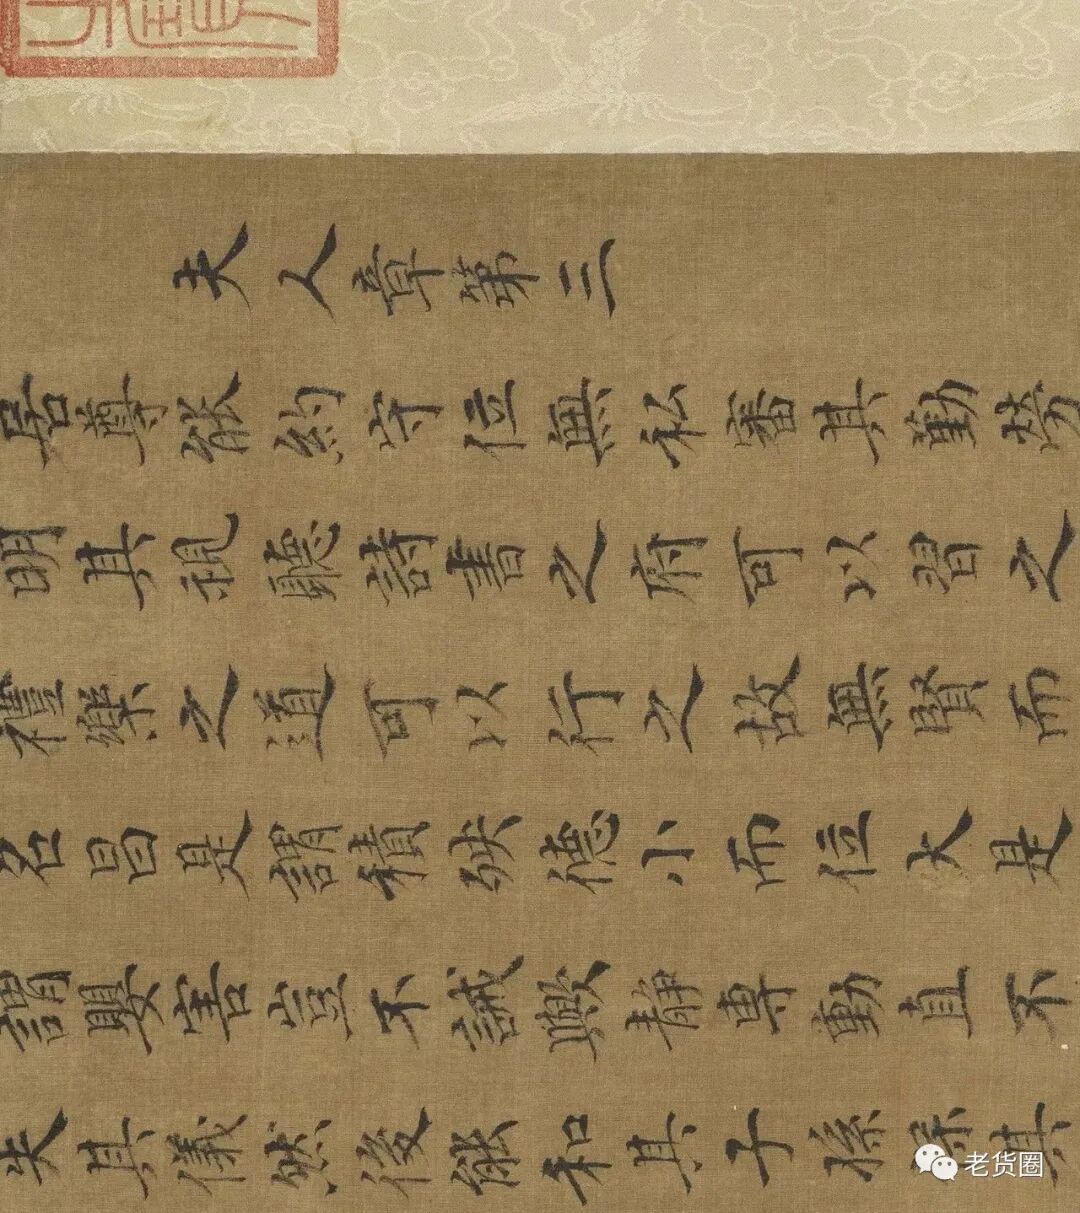 夫人章第三
居尊能約守位無私審其勤勞
明其視聽詩書之府可以習之
禮樂之道可以行之故無賢而
名昌是謂積殃德小而位大是
謂嬰害豈不誡歟靜專動直不
失其儀然後能和其子孫保其
老货圈